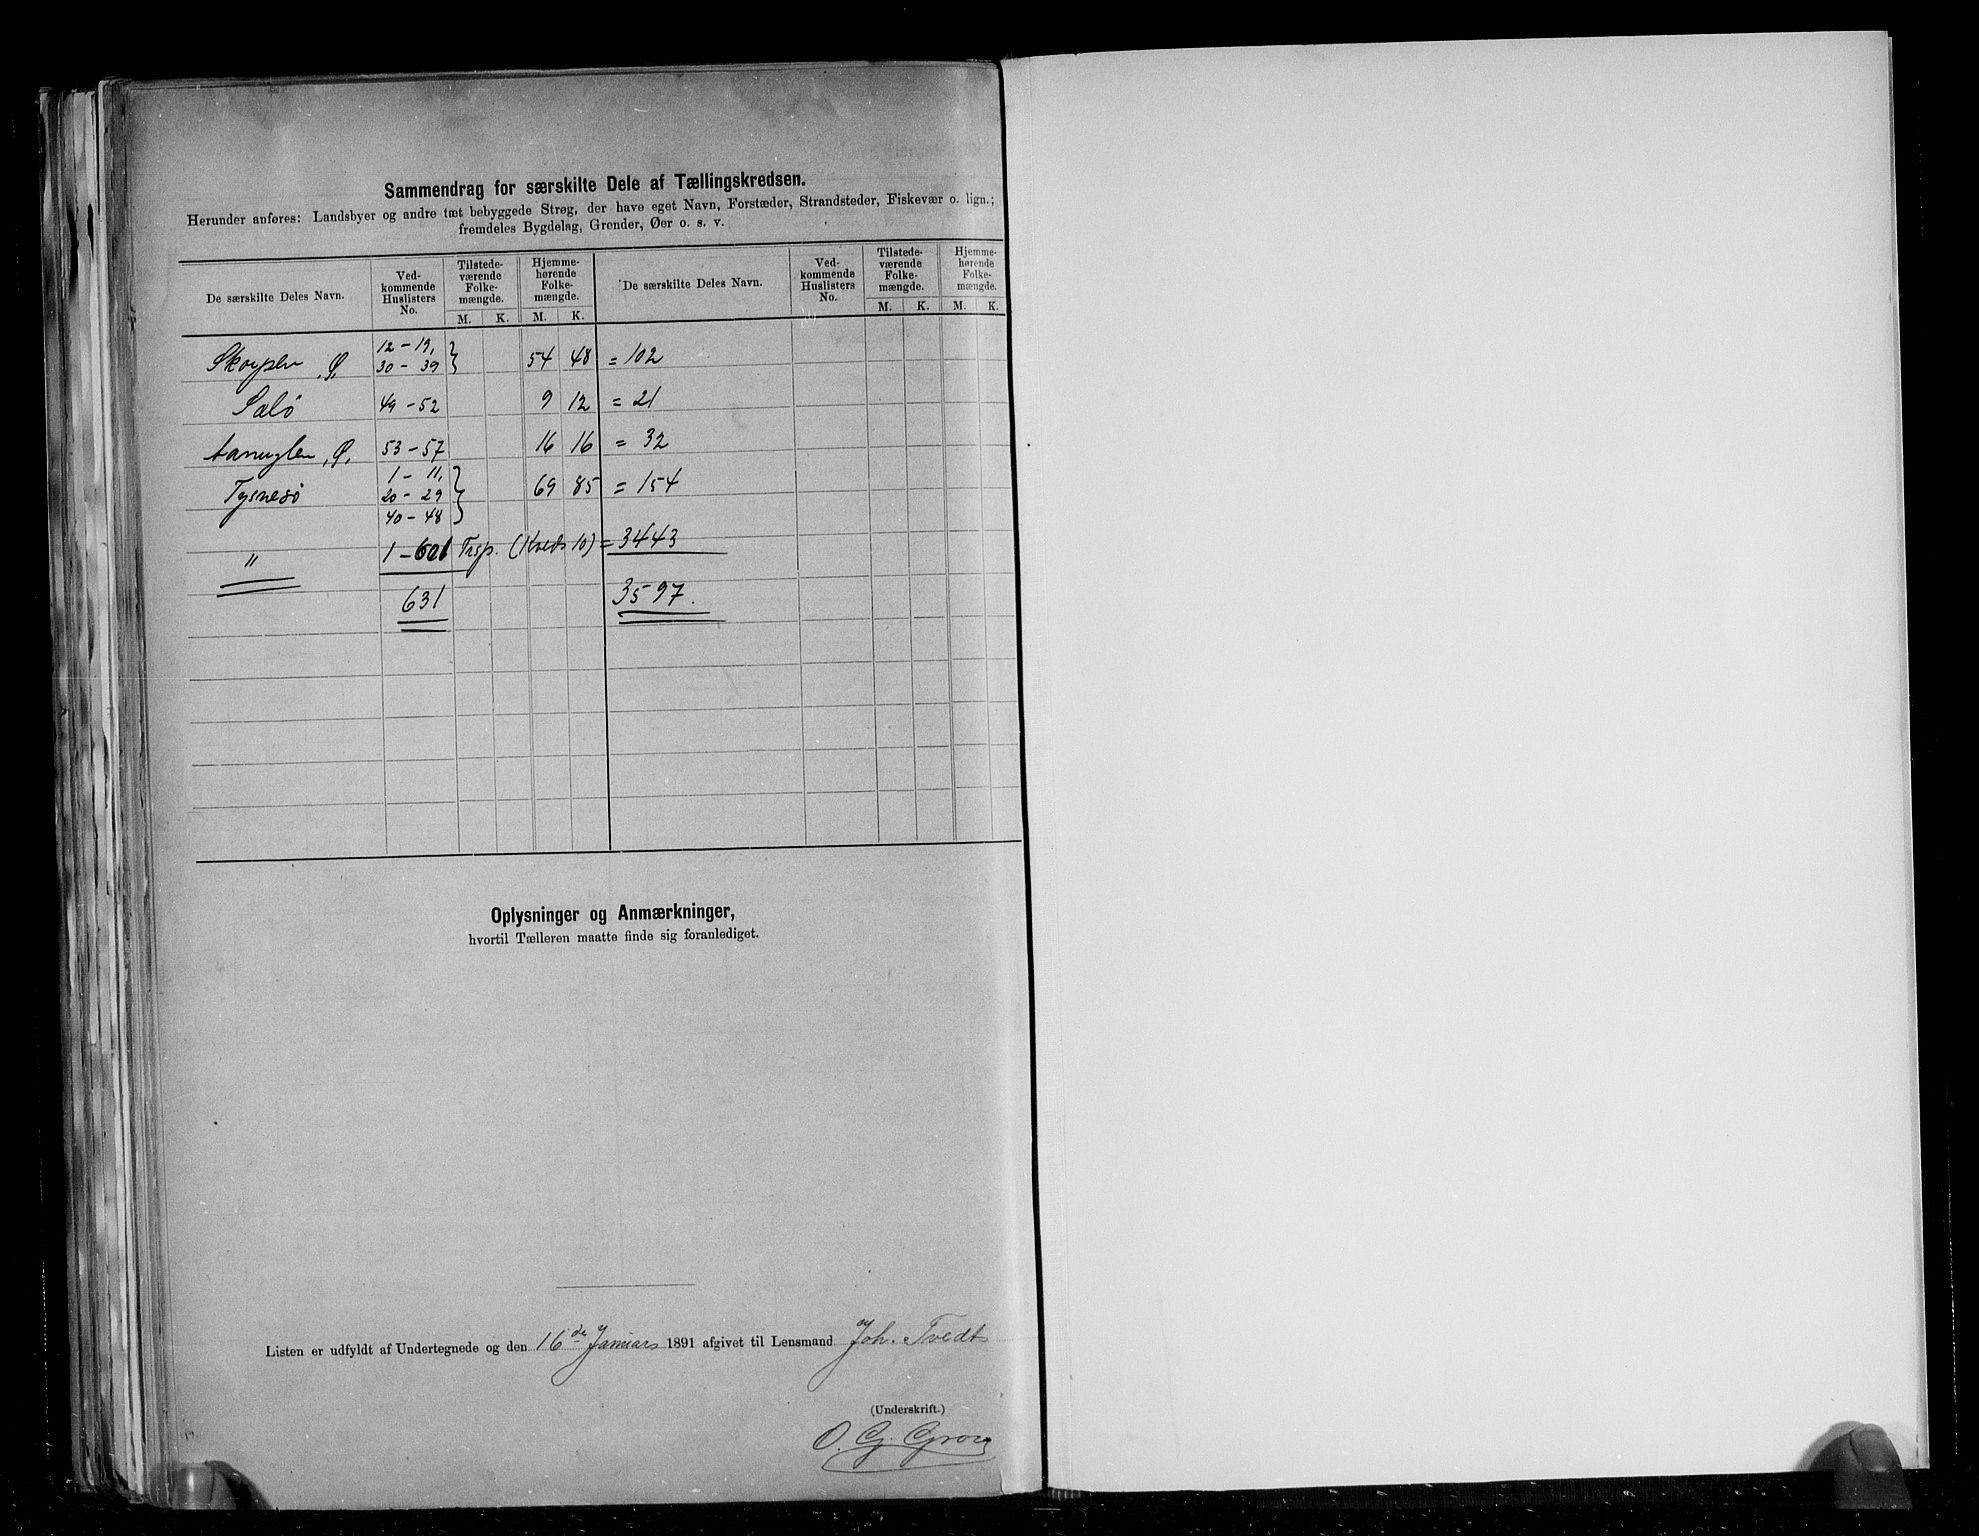 Sammendrag for særskilte Dele af Tællingskredsen.
Herunder anføres: Landsbyer og andre tæt bebyggede Strøg, der have eget Navn, Forstæder, Strandsteder, Fiskevær o. lign.;
fremdeles Bygdelag, Grender, Øer o. s. v.
De særskilte Deles Navn. Ved-kommende Huslisters No. Tilstede-værende Folke-mængde. Hjemme-hørende Folke-mængde. De særskilte Deles Navn. Ved-kommende Huslisters No. Tilstede-værende Folke-mængde. Hjemme-hørende Folke-mængde.
M. K. M. K. M. K. M. K.
Skorpen, Ø, 12-19, 30-39 } 54 48 = 102
Sælø 49-52 9 12 = 21
Aanuglen, Ø, 53-57 16 16 = 32
Tysnesø 1-11, 20-29 40-48 } 69 85 = 154
" 1-601 Trsp. (Kreds 10) = 3443
631 3597.
Oplysninger og Anmærkninger,
hvortil Tælleren maatte finde sig foranlediget.
Listen er udfyldt af Undertegnede og den 16de Januars 1891 afgivet til Lensmand Joh. Tvedt
(Underskrift.)
O. G.